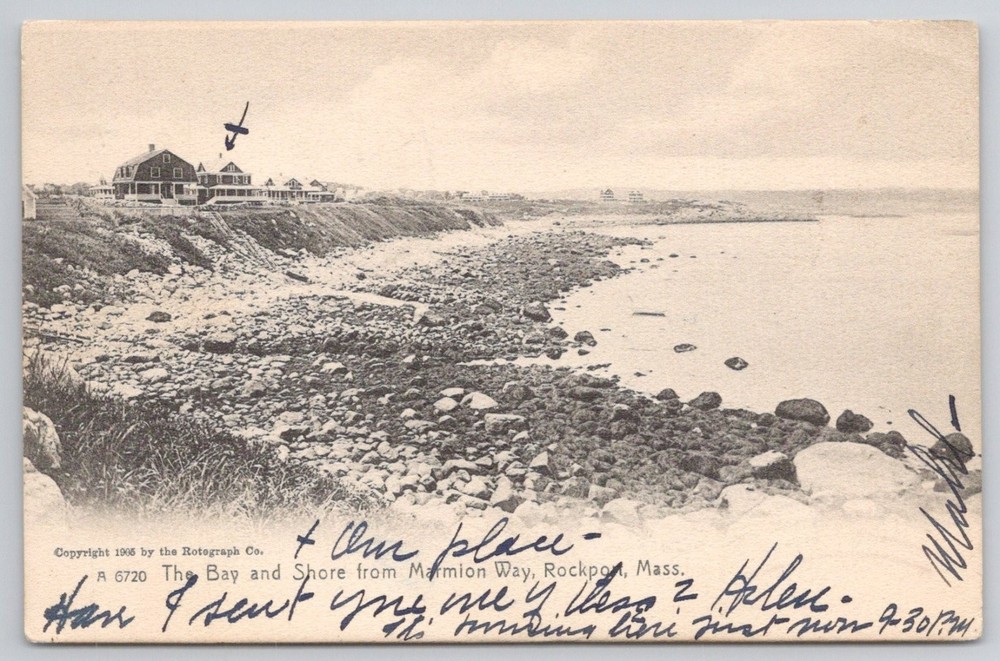 Copyright 1905 by the Rotograph Co.
+ Our place -
A 6720 The Bay and Shore from Marmion Way, Rockport, Mass.
Have I sent you one of these? Helen -
It's here just now 9-30 P.M